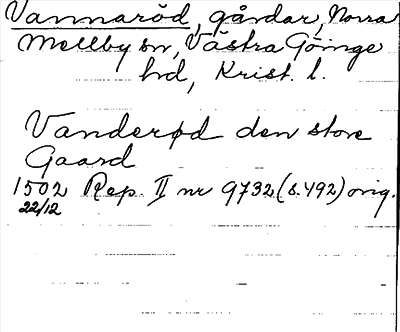 Vannaröd, gårdar, Norra
Mellby sn, Västra Göinge
hd, Krist. l.
Vanderød den store
Gaard
1502 Rep. II nr 9732 (s. 492) orig.
22/12